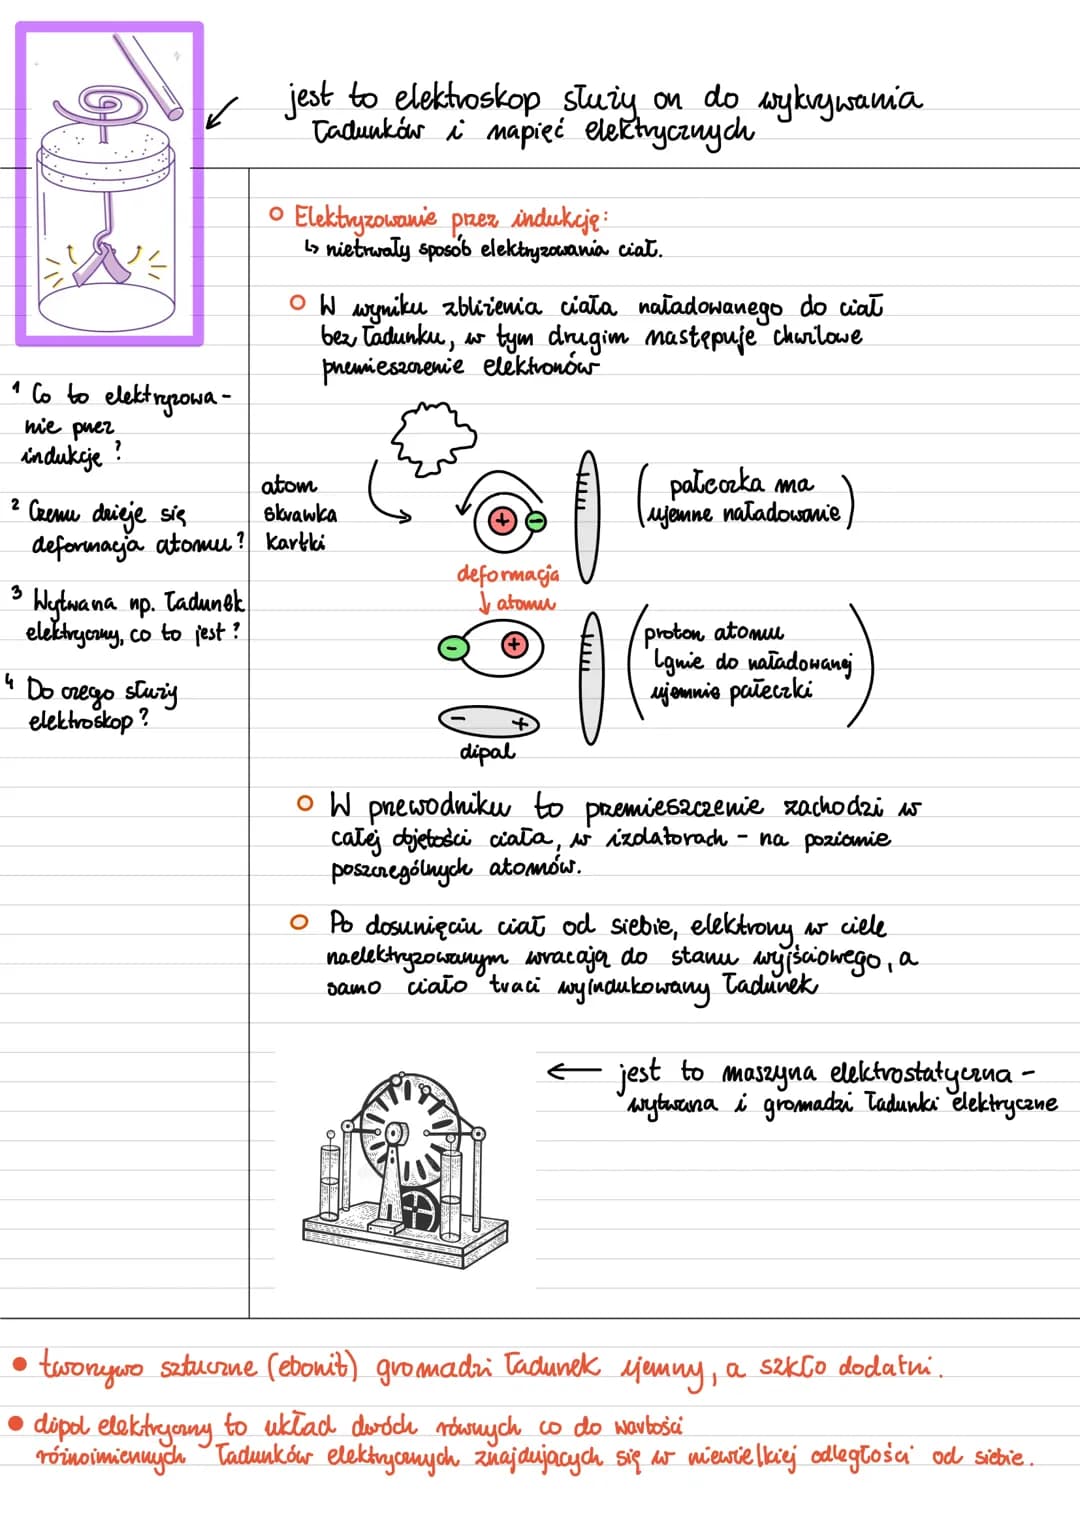 jest to elektroskop służy on do wykrywania
ładunków i napięć elektrycznych
Elektryzowanie przez indukcję:
↳ nietrwały sposób elektryzowania ciał.
W wyniku zbliżenia ciała naładowanego do ciał
bez ładunku, w tym drugim następuje chwilowe
przemieszczenie elektronów
1 Co to elektryzowa-
nie przez
indukcję?
2 Czemu dzieje się
deformacja atomu?
3 Wytwarza np. ładunek
elektryczny, co to jest?
4 Do czego służy
elektroskop?
atom
skrawka
kartki
+ -
(pałeczka ma
ujemne naładowanie)
deformacja
↓ atomu
- +
(proton atomu
lgnie do naładowanej
ujemnie pałeczki)
- +
dipal
W przewodniku to przemieszczenie zachodzi w
całej objętości ciała, w izolatorach - na poziomie
poszczególnych atomów.
Po dosunięciu ciał od siebie, elektrony w ciele
naelektryzowanym wracają do stanu wyjściowego, a
samo ciało traci wyindukowany ładunek
← jest to maszyna elektrostatyczna -
wytwarza i gromadzi ładunki elektryczne
• tworzywo sztuczne (ebonit) gromadzi ładunek ujemny, a szkło dodatni.
• dipol elektryczny to układ dwóch równych co do wartości
różnoimiennych ładunków elektrycznych znajdujących się w niewielkiej odległości od siebie.